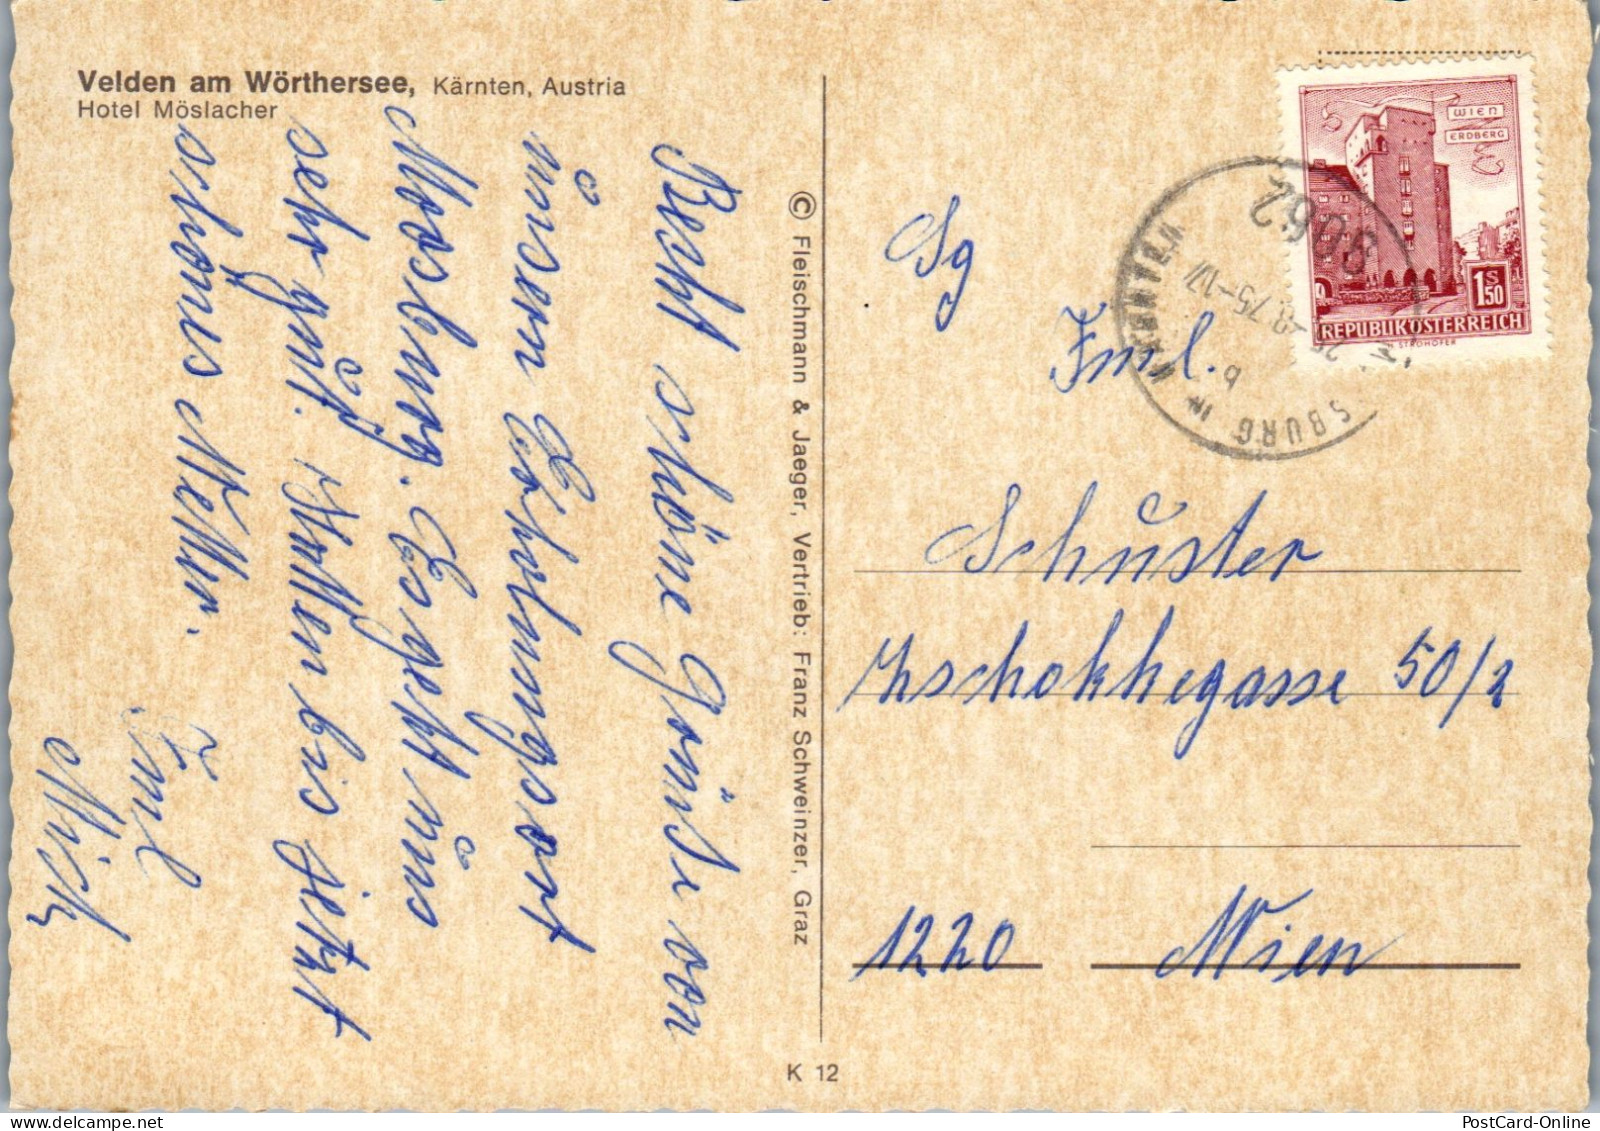 Velden am Wörthersee, Kärnten, Austria
Hotel Möslacher
Recht schöne Grüße von
unserem Erholungsort
Moosburg. Es geht uns
sehr gut. Hatten bis jetzt
schönes Wetter.
Fml
© Fleischmann & Jaeger, Vertrieb: Franz Schweinzer, Graz
K 12
WIEN
ERDBERG
1S
50
REPUBLIK ÖSTERREICH
STROHOFER
9062
8.75-17
b
SBURG IN KÄRNTEN
Sg
Fml.
Schuster
Zschokkegasse 50/2
1220 Wien
PostCard-Online